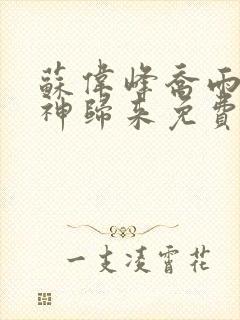 蘇偉峰喬雨
神歸來免費
一支凌霄花